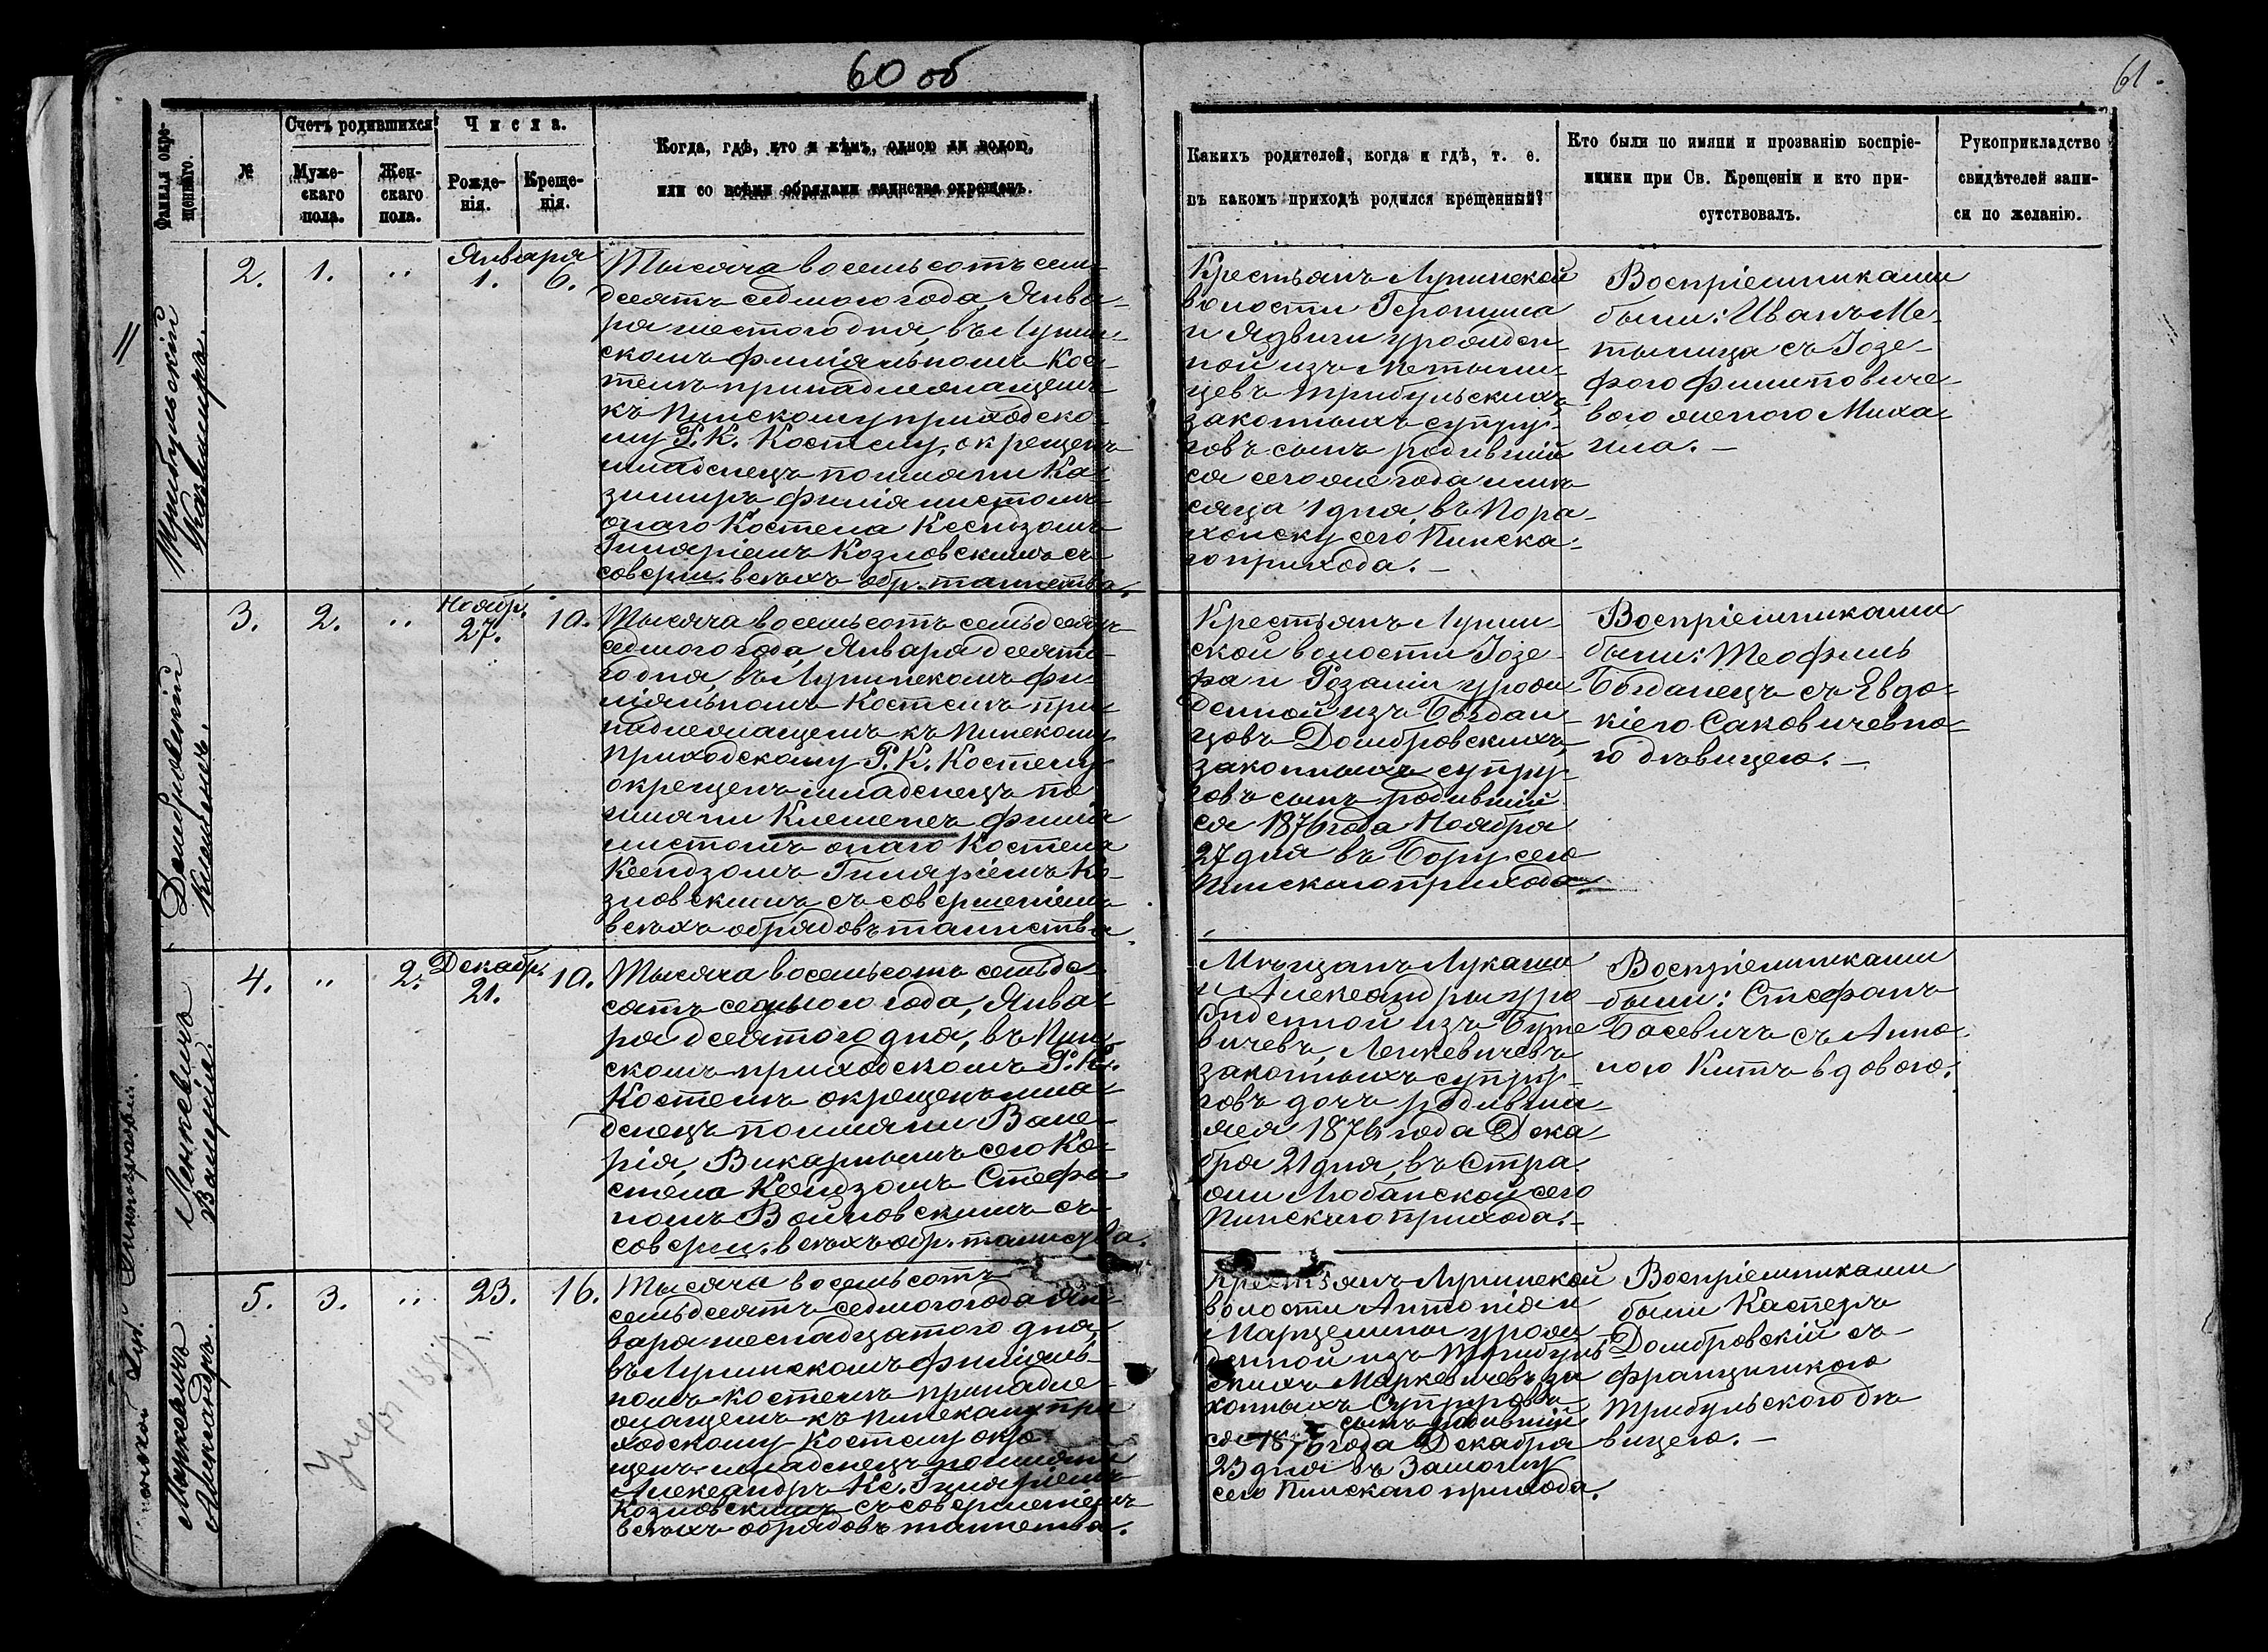 60 об
61.
Фамилія окре-
щеннаго.
№
Счетъ родившихся:
Муже-
скаго
пола.
Жен-
скаго
пола.
Числа.
Рожде-
нія.
Креще-
нія.
Когда, гдѣ, кто и кѣмъ, одною ли водою,
или со всѣми обрядами таинства окрещенъ.
Каких родителей, когда и гдѣ, т. е.
въ какомъ приходѣ родился крещенный?
Кто были по имяни и прозванію воспріе-
мники при Св. Крещеніи и кто при-
сутствовалъ.
Рукоприкладство
свидѣтелей запи-
си по желанію.
Трибульскій
Казимиръ.
2.
1.
"
Января
1.
6.
Тысяча восемьсотъ семь-
десятъ седмого года, Янва-
ря шестого дня, въ Лунин-
скомъ филіяльномъ Кос-
телѣ принадлежащемъ
къ Пинскому приходско-
му Р. К. Костелу, окрещенъ
младенецъ по имяни Ка-
зимиръ, филіялистомъ
онаго Костела Ксендзомъ
Гиляріемъ Козловскимъ съ
соверш. всѣхъ обр. таинства.
Крестьянъ Лунинской
волости Геронима
и Ядвиги урожден-
ной изъ Метыли-
цевъ Трибульскихъ,
законныхъ супру-
говъ сынъ родивший
ся сего же года и мѣ
сяца 1 дня, въ Пора-
хонску сего Пинска-
го прихода.—
Воспріемниками
были: Иванъ Ме-
тылица съ Іозе-
фою Филиповиче-
вою женою Миха-
ила.—
Домбровскій
Клеменъ.
3.
2.
"
Ноябр.
27.
10.
Тысяча восемьсотъ семьдесятъ
седмого года, Января десято-
го дня, въ Лунинскомъ фи-
ліяльномъ Костелѣ при-
надлежащемъ къ Пинскому
приходскому Р. К. Костелу
окрещенъ младенецъ по
имяни Клеменсъ филія
листомъ онаго Костела
Ксендзомъ Гиляріемъ Ко-
зловскимъ съ совершеніемъ
всѣхъ обрядовъ таинства.
Крестьянъ Лунин-
ской волости Іозе-
фа и Розаліи урож-
денной изъ Богдан-
цовъ Домбровскихъ,
законныхъ супру-
говъ сынъ родивший
ся 1876 года Ноября
27 дня въ Бору сего
Пинскаго прихода.—
Воспріемниками
были: Теофиль
Богданецъ съ Евдо-
кіею Саковичевно-
ю дѣвицею.—
Ленкевичъ
Валерія.
4.
"
2.
Декабр.
21.
10.
Тысяча восемьсотъ семьде-
сятъ седьмого года, Янва-
ря десятого дня, въ Пин-
скомъ приходскомъ Р. К.
Костелѣ окрещенъ мла-
денецъ по имяни Вале-
рія, Викарнымъ сего Ко-
стела Ксендзомъ Стефа-
номъ Войновскимъ съ
соверш. всѣхъ обр. таинства.
Мѣщанъ Лукаша
и Александры уро
жденной изъ
вичевъ, Ленкевичевъ
законныхъ супру-
говъ дочь родивша-
яся 1876 года Дека-
бря 21 дня, въ Стра-
жи Любанской сего
Пинскаго прихода.—
Воспріемниками
были: Стефанъ
Басевичъ съ Анно-
ною Китъ вдовою.
Маркевичъ
Александръ.
5.
3.
"
23.
16.
Умеръ
Тысяча восемьсотъ
семьдесятъ седмого года Ян-
варя шеснадцатого дня,
въ Лунинскомъ филіяль-
номъ костелѣ принадле-
жащемъ къ Пинскому при
ходскому Костелу окре-
щенъ младенецъ по имяни
Александръ Кс. Гиляріемъ
Козловскимъ съ совершеніемъ
всѣхъ обрядовъ таинства.
Крестьянъ Лунинской
волости Антонія и
Марцелины урож-
денной изъ Трибуль-
скихъ Маркевичевъ, за
конныхъ Супруговъ
сынъ родивший
ся 1876 года Декабря
23 дня въ Замошу
сего Пинскаго прихода.
Воспріемниками
были Касперъ
Домбровскій съ
францишкою
Трибульскою дѣ
вицею.—